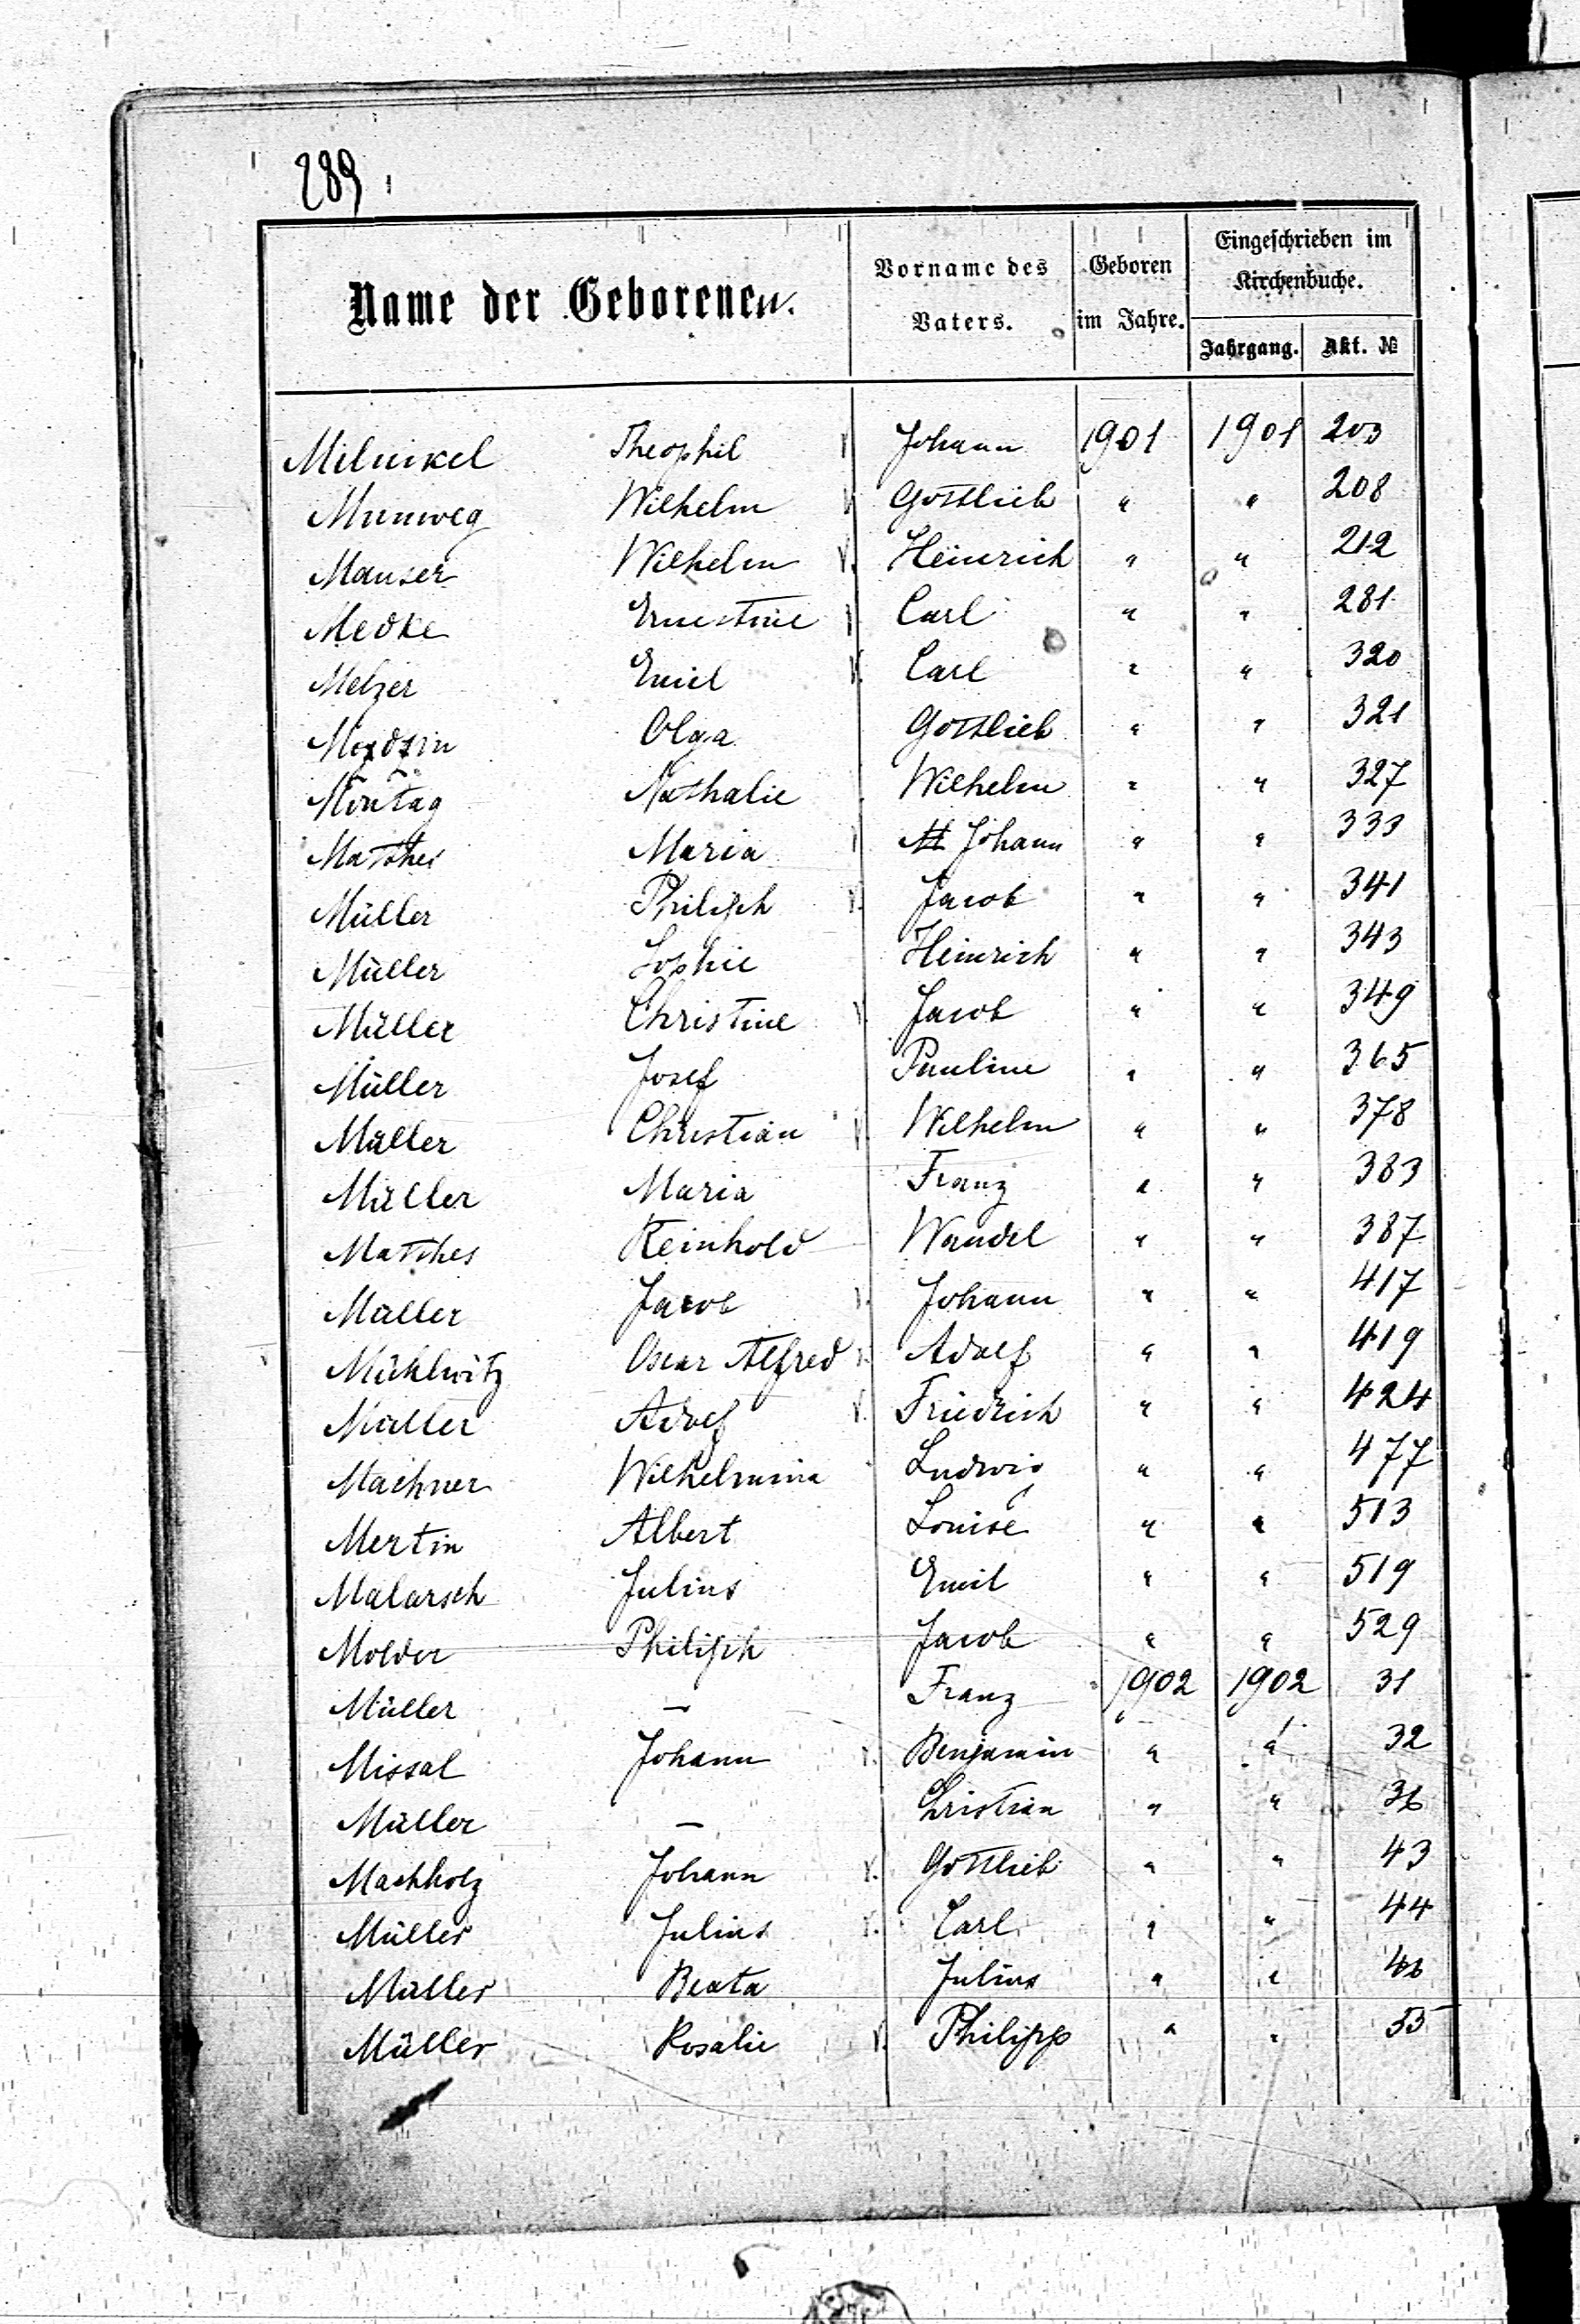 289
Name der Geborenen.
Vorname des Vaters.
Geboren im Jahre.
Eingeschrieben im Kirchenbuche.
Jahrgang. Akt. №
Milnikel Theophil Johann 1901 1901 203
Munweg Wilhelm Gottlieb " " 208
Manser Wilhelm Heinrich " " 212
Medke Ernestine Carl " " 281
Melzer Emil Carl " " 320
Olga Gottlieb " " 321
Montag Nathalie Wilhelm " " 327
Matthes Maria Johann " " 333
Müller Philipp Jacob " " 341
Müller Sophie Heinrich " " 343
Müller Christine Jacob " " 349
Müller Josef Pauline " " 365
Müller Christian Wilhelm " " 378
Müller Maria Franz " " 383
Matthes Reinhold Wandel " " 387
Müller Jacob Johann " " 417
Mühlwitz Oscar Alfred Adolf " " 419
Müller Adolf Friedrich " " 424
Machner Wilhelmina Ludwig " " 477
Mertin Albert Louise " " 513
Malarsch Julius Emil " " 519
Molder Philipp Jacob " " 529
Müller — Franz 1902 1902 31
Missal Johann Benjamin " " 32
Müller — Christian " " 36
Machholz Johann Gottlieb " " 43
Müller Julius Carl " " 44
Müller Beata Julius " " 46
Müller Rosalie Philipp " " 55